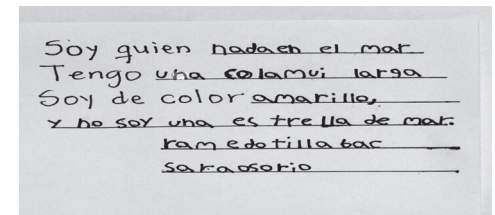 Soy quien nadaen el mar
Tengo una colamui larga
Soy de color amarillo,
y no soy una es trella de mar.
ramedotilla bac
saraosorio